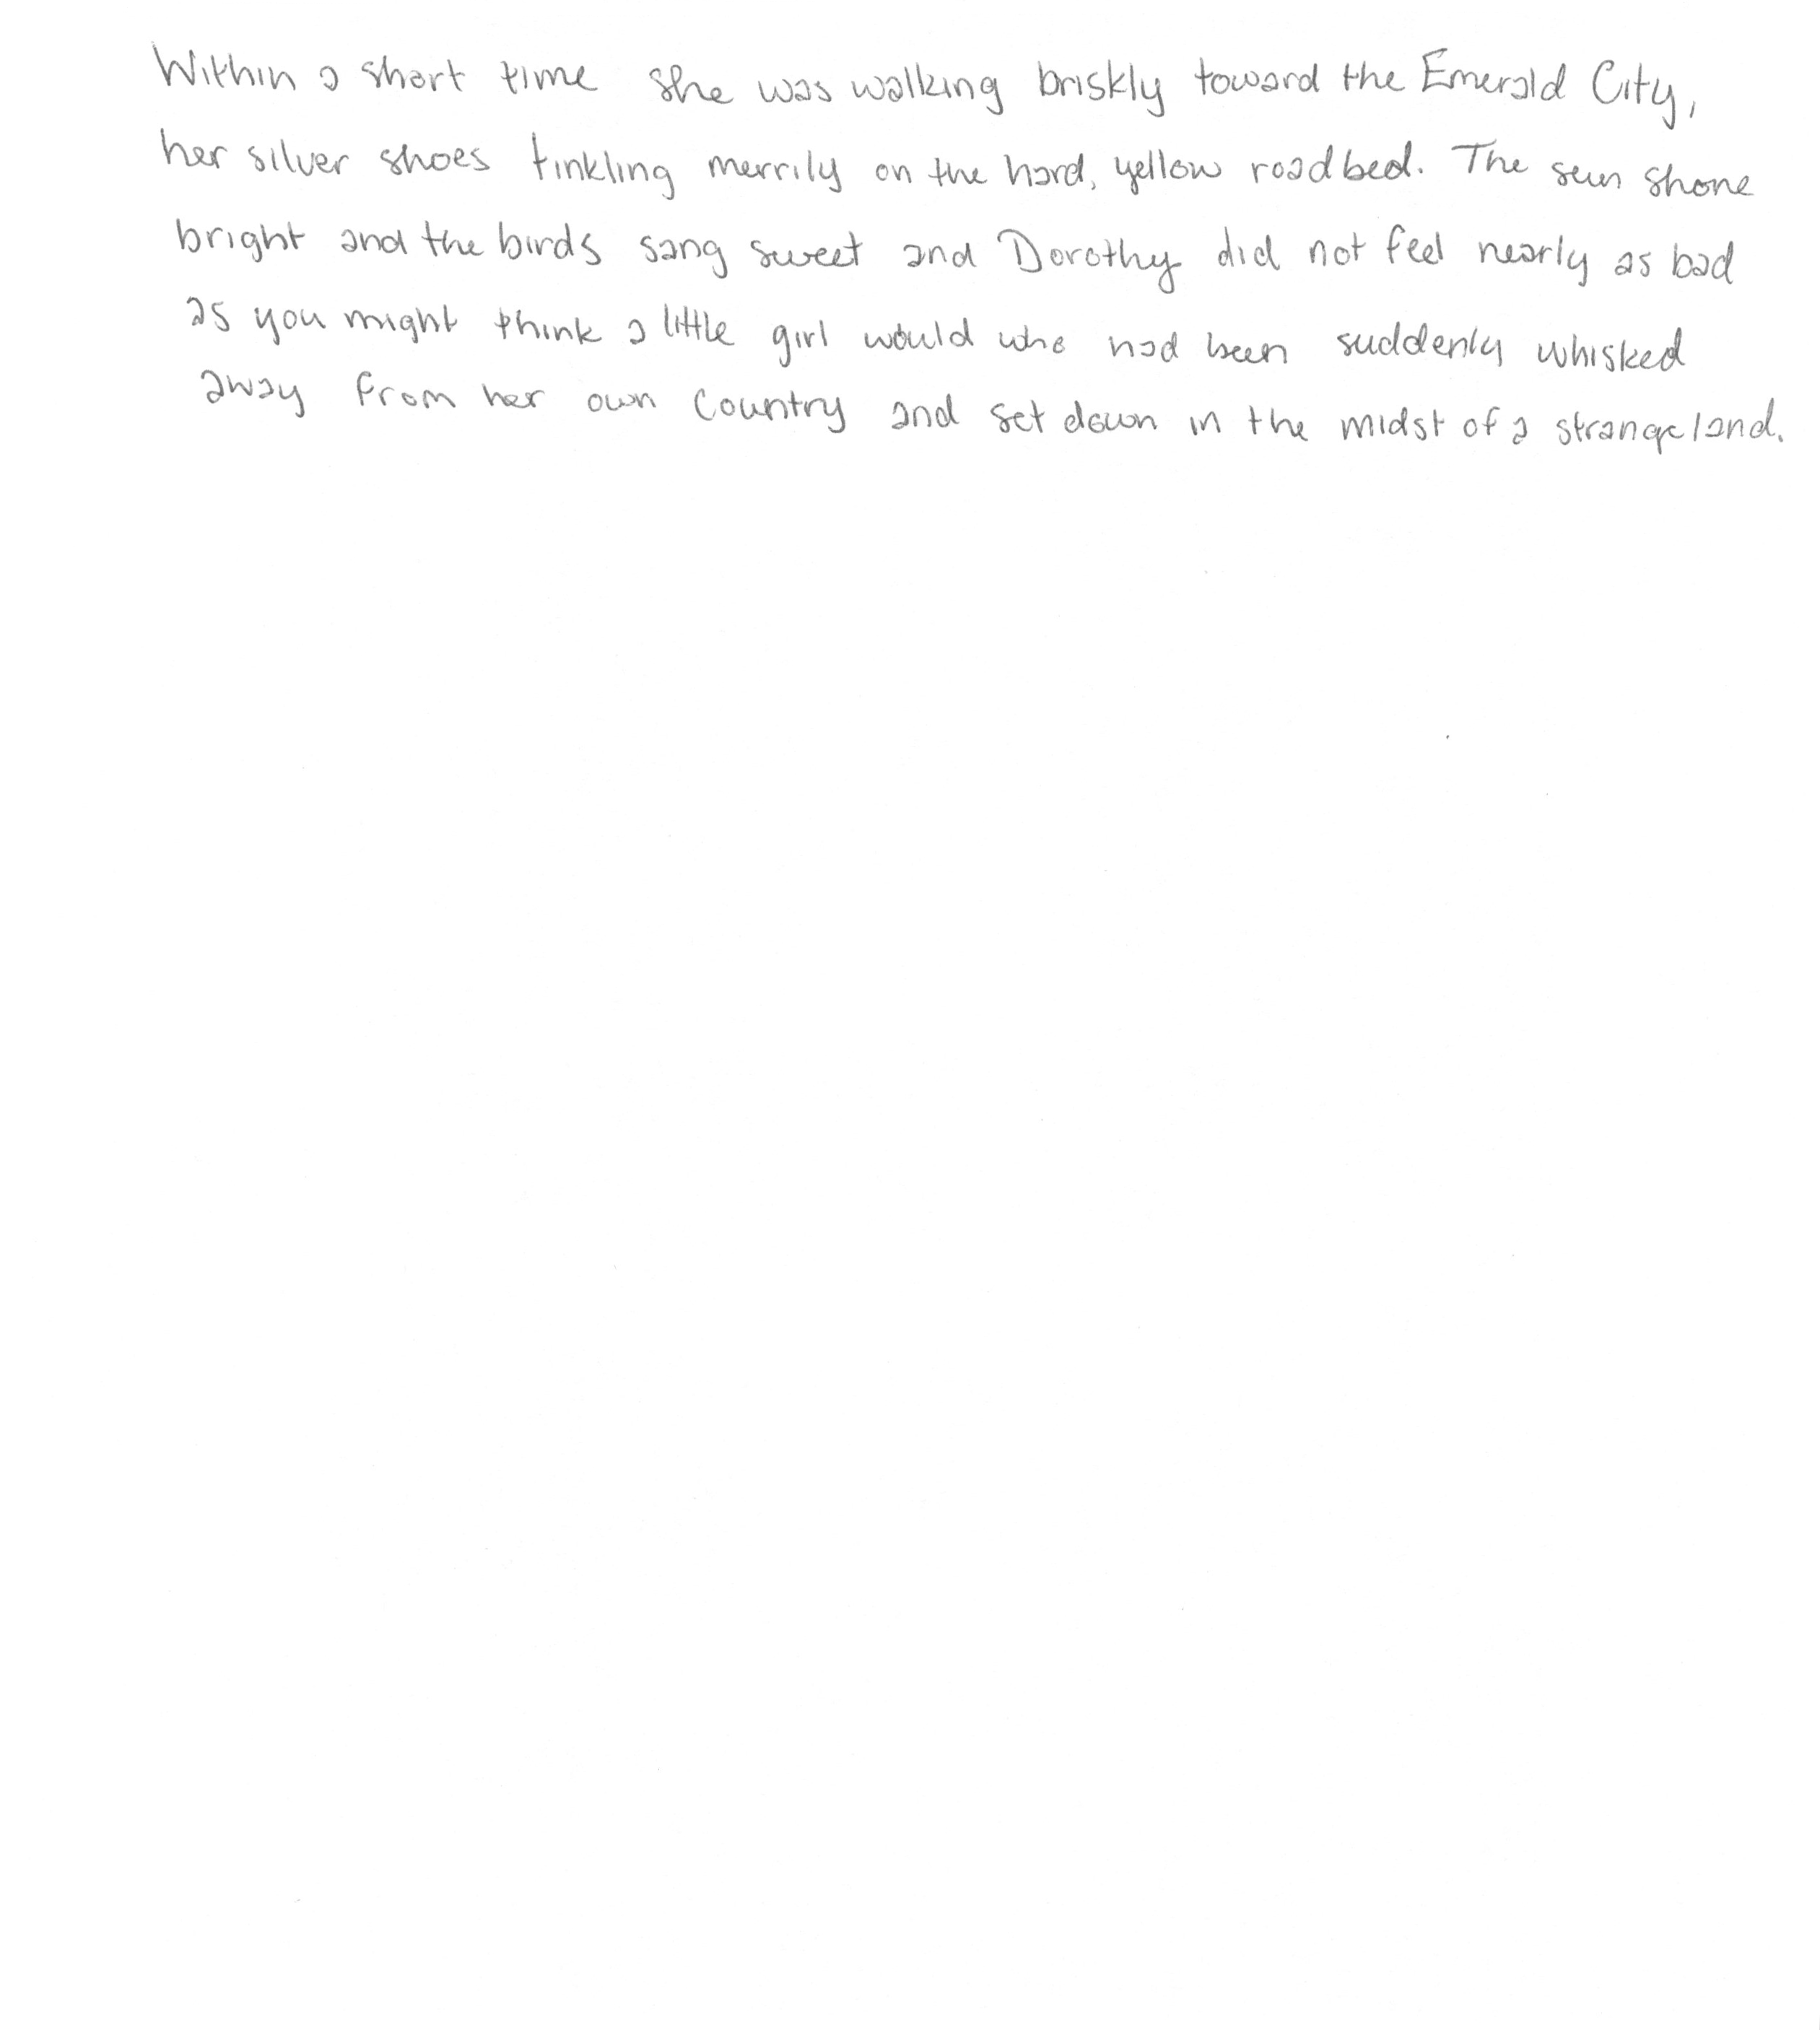 Within a short time she was walking briskly toward the Emerald City,
her silver shoes tinkling merrily on the hard, yellow roadbed. The sun shone
bright and the birds sang sweet and Dorothy did not feel nearly as bad
as you might think a little girl would who had been suddenly whisked
away from her own country and set down in the midst of a strange land.